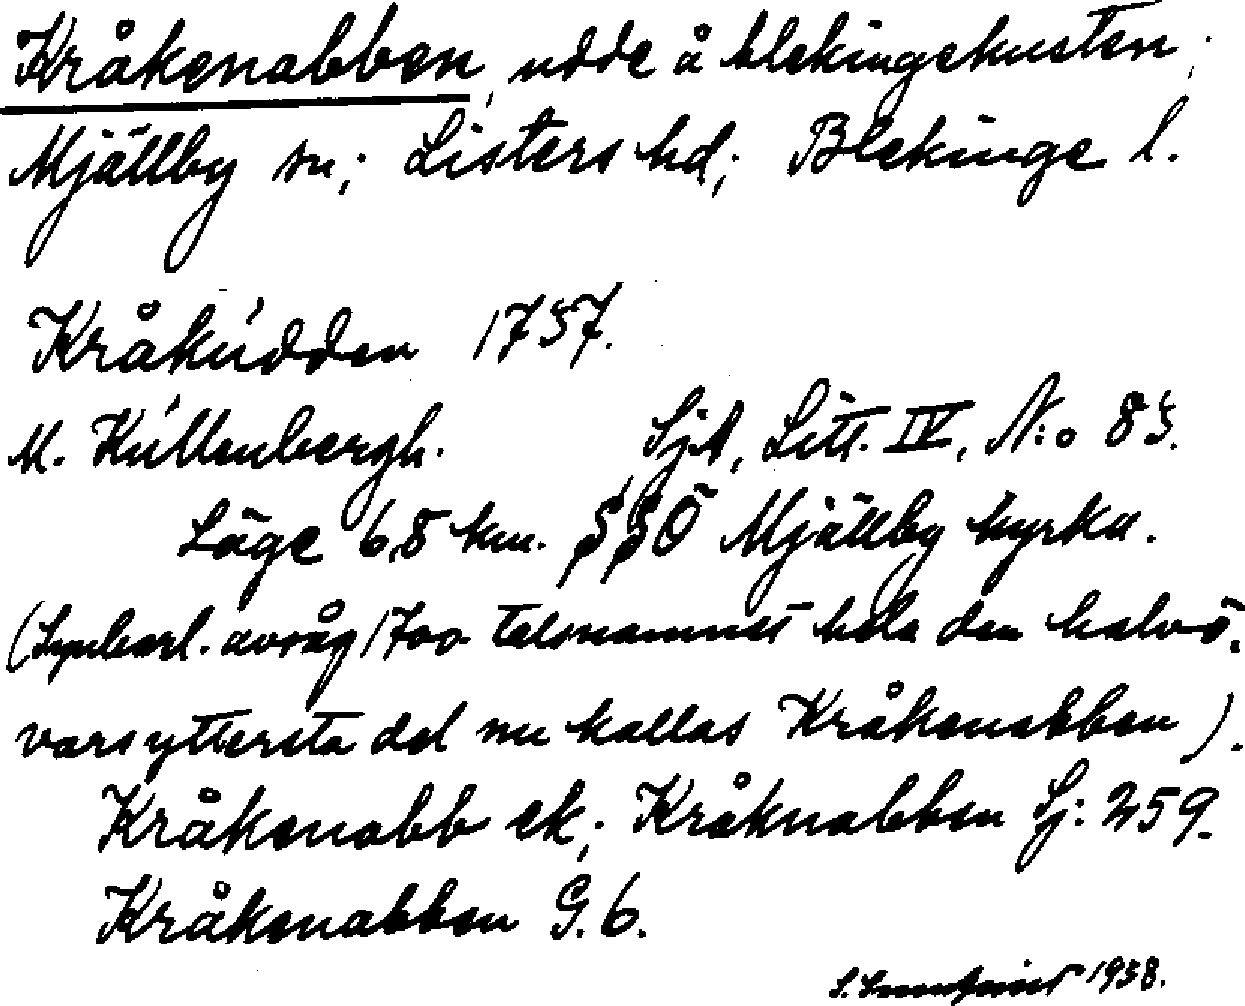 Kråkenabben, udde å blekingekusten;
Mjällby sn; Listers hd; Blekinge l.
Kråkudden 1757.
M. Kullenbergh. Sjk, Litt. IV, N:o 85.
Läge 6,8 km. SSO Mjällby kyrka.
(Synbarl. avsåg 1700-talsnamnet hela den halvö,
vars yttersta del nu kallas Kråkenabben).
Kråkenabb ek; Kråknabben Sj: 259.
Kråkenabben G. 6.
1938.